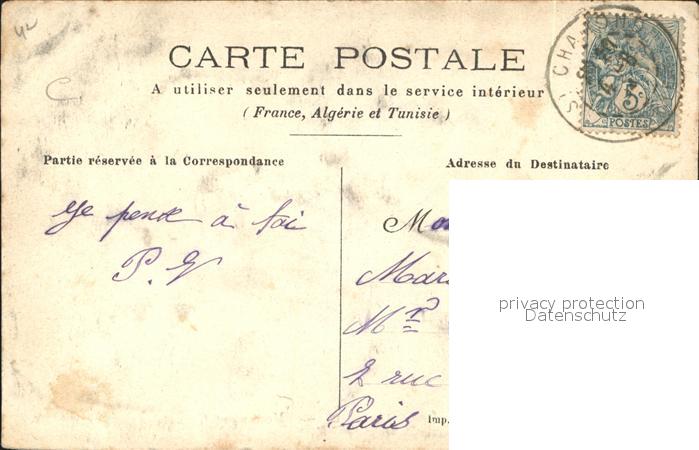 CARTE POSTALE
A utiliser seulement dans le service intérieur
(France, Algérie et Tunisie)
Partie réservée à la Correspondance
Adresse du Destinataire
Je pense à toi
P. V
Mar
Mr
2 rue
Paris
Imp.
5c
POSTES
privacy protection
Datenschutz